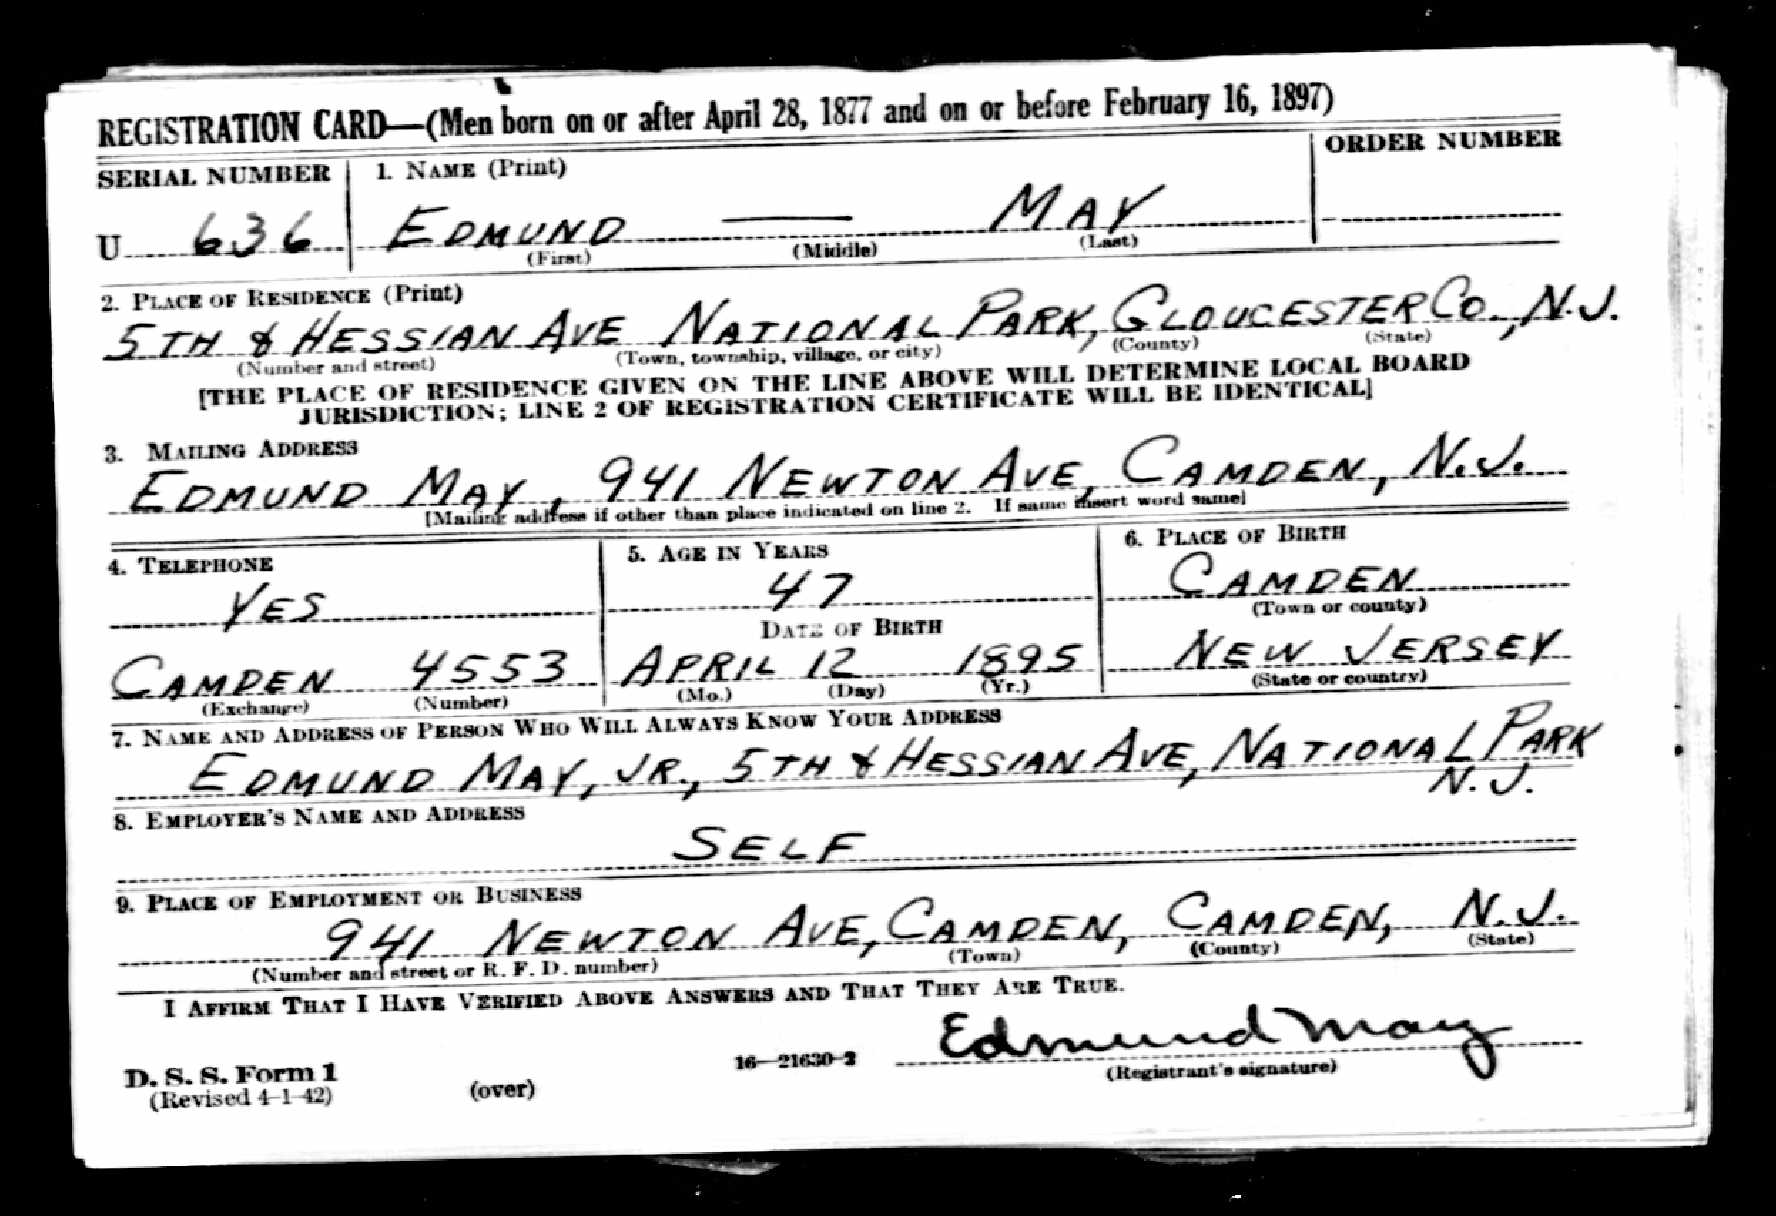 REGISTRATION CARD—(Men born on or after April 28, 1877 and on or before February 16, 1897)
SERIAL NUMBER 1. NAME (Print) ORDER NUMBER
U 636 EDMUND — MAY
(First) (Middle) (Last)
2. PLACE OF RESIDENCE (Print)
5TH & HESSIAN AVE NATIONAL PARK, GLOUCESTER CO., N.J.
(Number and street) (Town, township, village, or city) (County) (State)
[THE PLACE OF RESIDENCE GIVEN ON THE LINE ABOVE WILL DETERMINE LOCAL BOARD
JURISDICTION; LINE 2 OF REGISTRATION CERTIFICATE WILL BE IDENTICAL]
3. MAILING ADDRESS
EDMUND MAY, 941 NEWTON AVE, CAMDEN, N.J.
[Mailing address if other than place indicated on line 2. If same insert word same]
4. TELEPHONE 5. AGE IN YEARS 6. PLACE OF BIRTH
YES 47 CAMDEN
(Town or county)
DATE OF BIRTH
CAMDEN 4553 APRIL 12 1895 NEW JERSEY
(Exchange) (Number) (Mo.) (Day) (Yr.) (State or country)
7. NAME AND ADDRESS OF PERSON WHO WILL ALWAYS KNOW YOUR ADDRESS
EDMUND MAY, JR., 5TH & HESSIAN AVE, NATIONAL PARK
N.J.
8. EMPLOYER'S NAME AND ADDRESS
SELF
9. PLACE OF EMPLOYMENT OR BUSINESS
941 NEWTON AVE, CAMDEN, CAMDEN, N.J.
(Number and street or R. F. D. number) (Town) (County) (State)
I AFFIRM THAT I HAVE VERIFIED ABOVE ANSWERS AND THAT THEY ARE TRUE.
Edmund May
D. S. S. Form 1 16—21630-2 (Registrant's signature)
(Revised 4-1-42) (over)